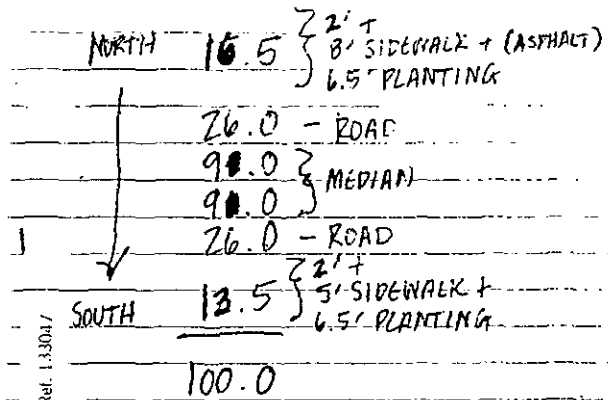 NORTH 16.5 } 2' +
8' SIDEWALK + (ASPHALT)
6.5' PLANTING
26.0 - ROAD
9.0 } MEDIAN
9.0
26.0 - ROAD
SOUTH 13.5 } 2' +
5' SIDEWALK +
6.5' PLANTING
100.0
Ref. 133047